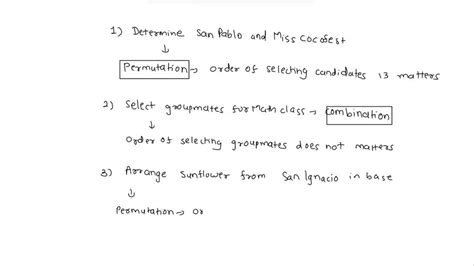 1) Determine San Pablo and Miss Cocofest
Permutation → order of selecting candidates is matters
2) Select groupmates for Math class → Combination
Order of selecting groupmates does not matters
3) Arrange Sunflower from San Ignacio in base
Permutation → Or